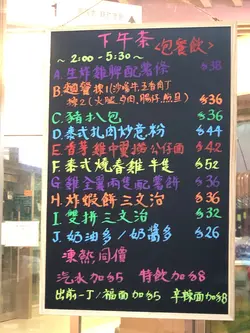 下午茶 <包餐飲>
~ 2:00 - 5:30 ~
A. 生炸雞髀配薯條 $38
B. 超質 揀1(沙嗲牛 五香肉丁
揀2(火腿,夕肉,腸仔,煎旦) $36
C. 豬扒包 $36
D. 泰式扎肉炒意粉 $44
E. 香茅雞中翼撈公仔面 $42
F. 泰式燒香雞半隻 $52
G. 雞全翼两隻配薯餅 $36
H. 炸蝦餅三文治 $36
I. 雙拼三文治 $32
J. 奶油多/奶醬多 $26
凍熱同價
汽水加$5 特飲加$8
出前一丁/福面加$5 辛辣面加$8